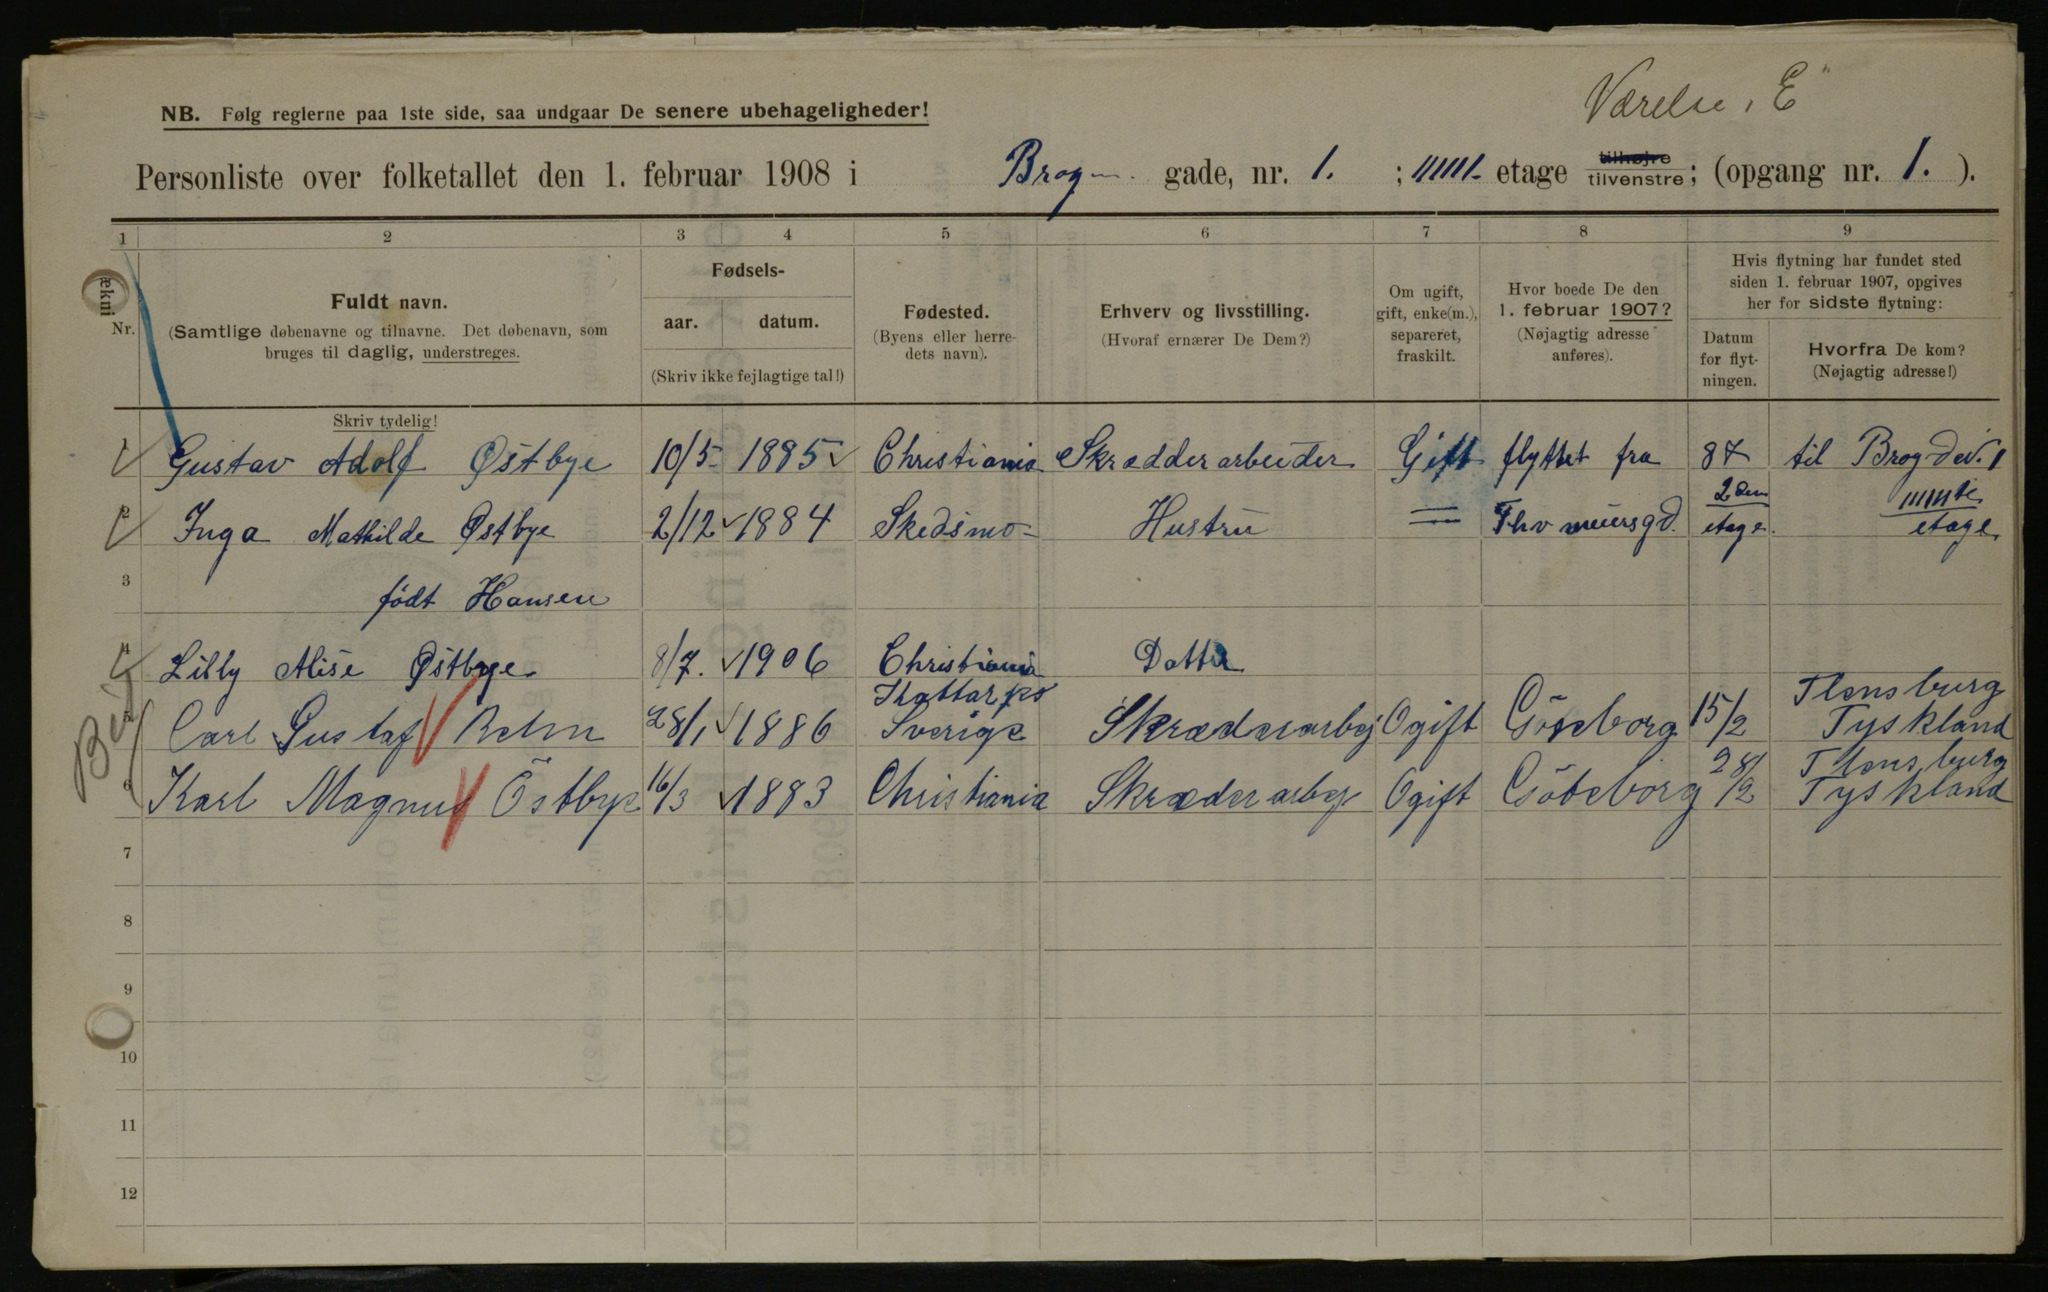 Værelse, E"
NB. Følg reglerne paa 1ste side, saa undgaar De senere ubehageligheder!
Personliste over folketallet den 1. februar 1908 i Brog gade, nr. 1. ; 11111. etage tilhøjre tilvenstre; (opgang nr. 1. ).
1 2 3 4 5 6 7 8 9
Nr.
Fuldt navn.
(Samtlige døbenavne og tilnavne. Det døbenavn, som
bruges til daglig, understreges.
Skriv tydelig!
Fødsels-
aar. datum.
(Skriv ikke fejlagtige tal!)
Fødested.
(Byens eller herre-
dets navn).
Erhverv og livsstilling.
(Hvoraf ernærer De Dem?)
Om ugift,
gift, enke(m.),
separeret,
fraskilt.
Hvor boede De den
1. februar 1907?
(Nøjagtig adresse
anføres).
Hvis flytning har fundet sted
siden 1. februar 1907, opgives
her for sidste flytning:
Datum
for flyt-
ningen.
Hvorfra De kom?
(Nøjagtig adresse!)
1 Gustav Adolf Østbye 10/5 1885 Christiania Skrædderarbeider Gift flyttet fra 87 til Brogd. 1
2 Inga Mathilde Østbye 2/12 1884 Skedsmo Hustru = Thv meiersgd. 2den etage. etage.
3 født Hansen
4 Lilly Alise Østbye 8/7. 1906 Christiania Datter
Carl Gustaf 28/1 1886 Sverige Skræderarbej Ogift Göteborg 15/2 Flensburg Tyskland
6 Karl Magnus Östbye 16/3 1883 Christiania Skræderarbej Ogift Göteborg 28/2 Flensburg Tyskland
7
8
9
10
11
12